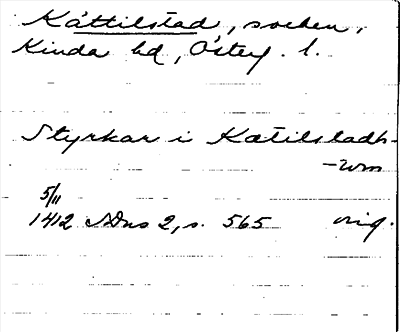 Kättilstad, socken,
Kinda hd, Österg. l.
Styrkar i Katilstadh-
-um
5/11
1412 SDns 2, s. 565 orig.